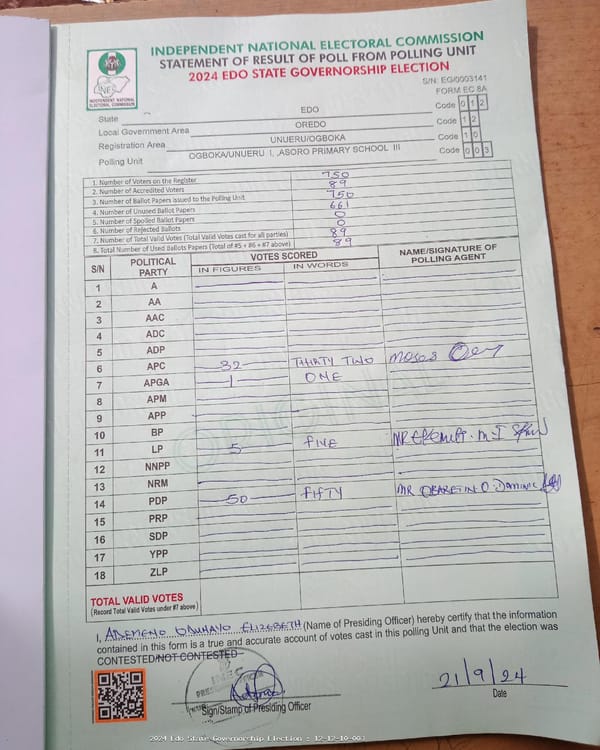 INDEPENDENT NATIONAL ELECTORAL COMMISSION
STATEMENT OF RESULT OF POLL FROM POLLING UNIT
2024 EDO STATE GOVERNORSHIP ELECTION
INEC
INDEPENDENT NATIONAL ELECTORAL COMMISSION
S/N: EG/0003141
FORM EC 8A
State EDO Code 0 1 2
Local Government Area OREDO Code 1 2
Registration Area UNUERU/OGBOKA Code 1 0
Polling Unit OGBOKA/UNUERU I, ASORO PRIMARY SCHOOL III Code 0 0 3
1. Number of Voters on the Register 750
2. Number of Accredited Voters 89
3. Number of Ballot Papers issued to the Polling Unit 750
4. Number of Unused Ballot Papers 661
5. Number of Spoiled Ballot Papers 0
6. Number of Rejected Ballots 0
7. Number of Total Valid Votes (Total Valid Votes cast for all parties) 89
8. Total Number of Used Ballots Papers (Total of #5 + #6 + #7 above) 89
S/N POLITICAL PARTY VOTES SCORED NAME/SIGNATURE OF POLLING AGENT
IN FIGURES IN WORDS
1 A
2 AA
3 AAC
4 ADC
5 ADP
6 APC 32 THIRTY TWO Moses
7 APGA 1 ONE
8 APM
9 APP
10 BP
11 LP 5 FIVE MR
12 NNPP
13 NRM
14 PDP 50 FIFTY MR O. Dominic
15 PRP
16 SDP
17 YPP
18 ZLP
TOTAL VALID VOTES
(Record Total Valid Votes under #7 above)
I, ELIZABETH (Name of Presiding Officer) hereby certify that the information
contained in this form is a true and accurate account of votes cast in this polling Unit and that the election was
CONTESTED/NOT CONTESTED
INEC
21/9/24
Sign/Stamp of Presiding Officer Date
2024 Edo State Governorship Election : 12-12-10-003